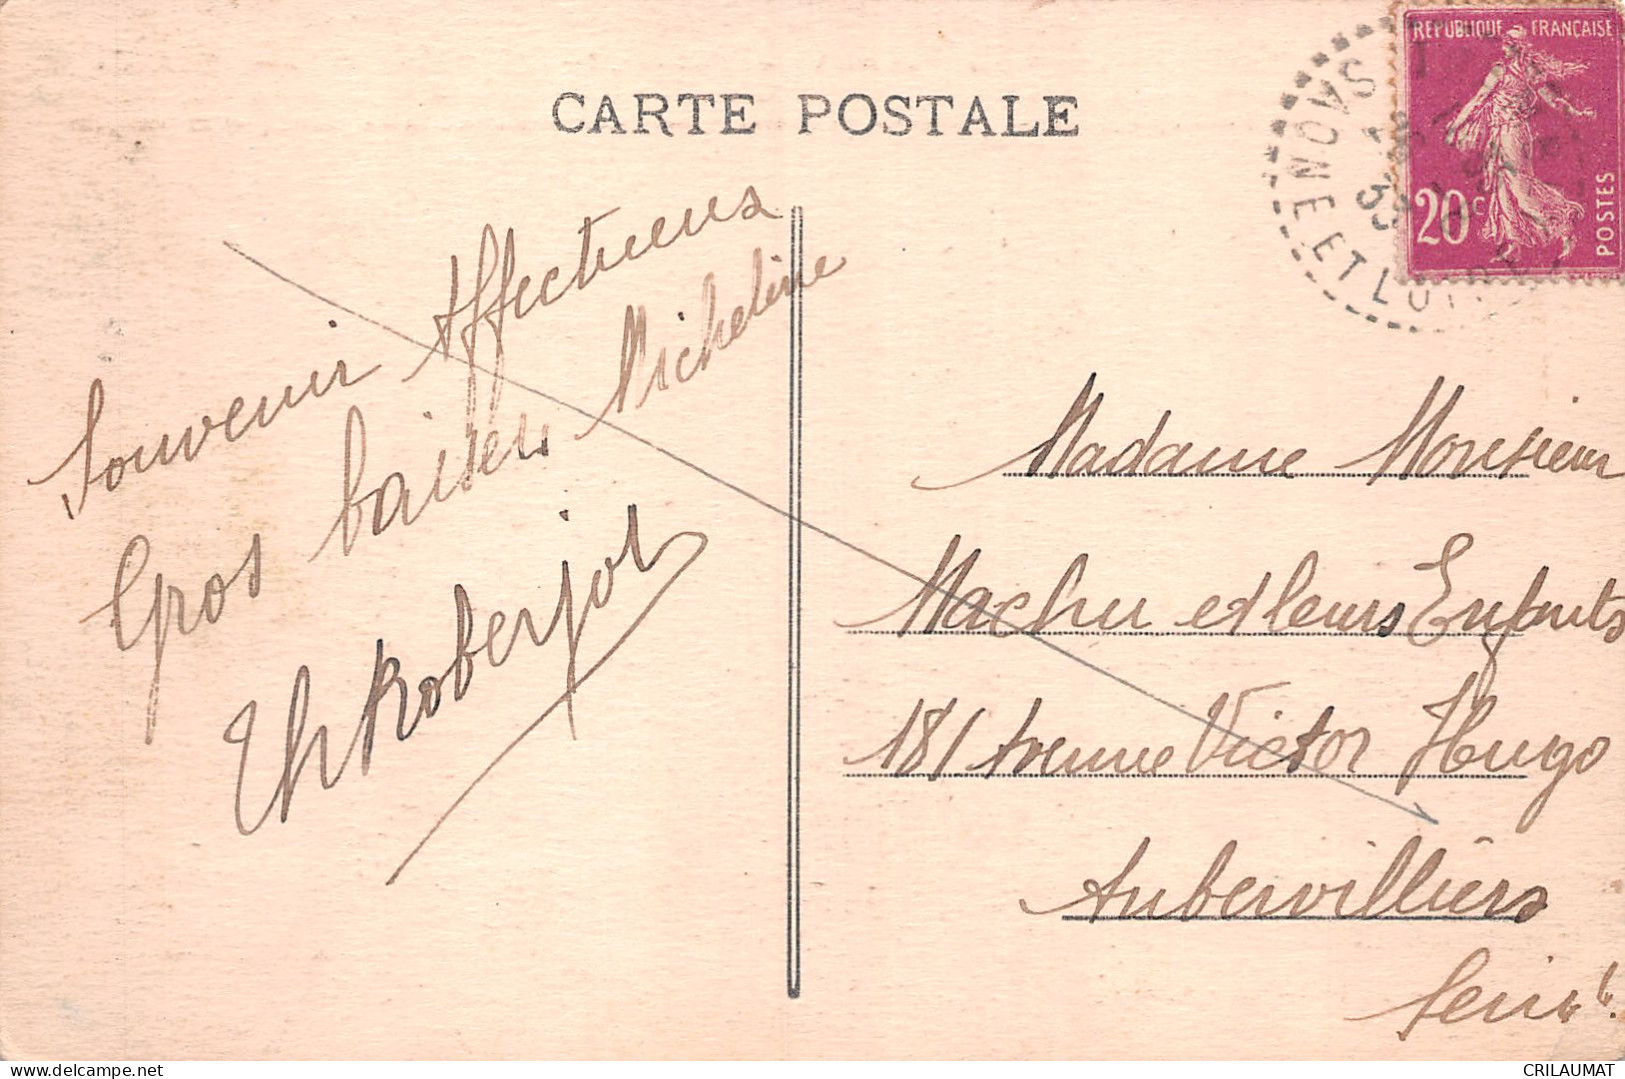 CARTE POSTALE
REPUBLIQUE FRANÇAISE
20c
POSTES
SAONE ET LOIRE
Souvenir Affectueux
Gros baisers Micheline
Madame Monsieur
Machu et leurs Enfants
181 Avenue Victor Hugo
Aubervilliers
Seine
CRILAUMAT